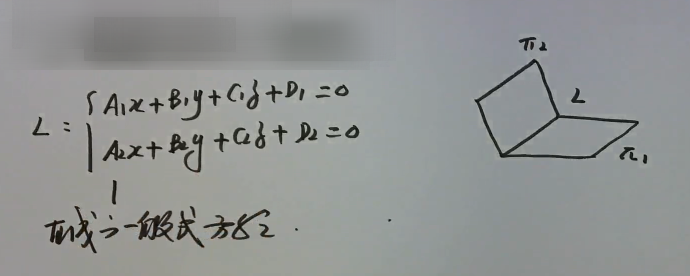 L = { A₁x + B₁y + C₁z + D₁ = 0
A₂x + B₂y + C₂z + D₂ = 0
直线的一般式方程.
π₂
L
π₁